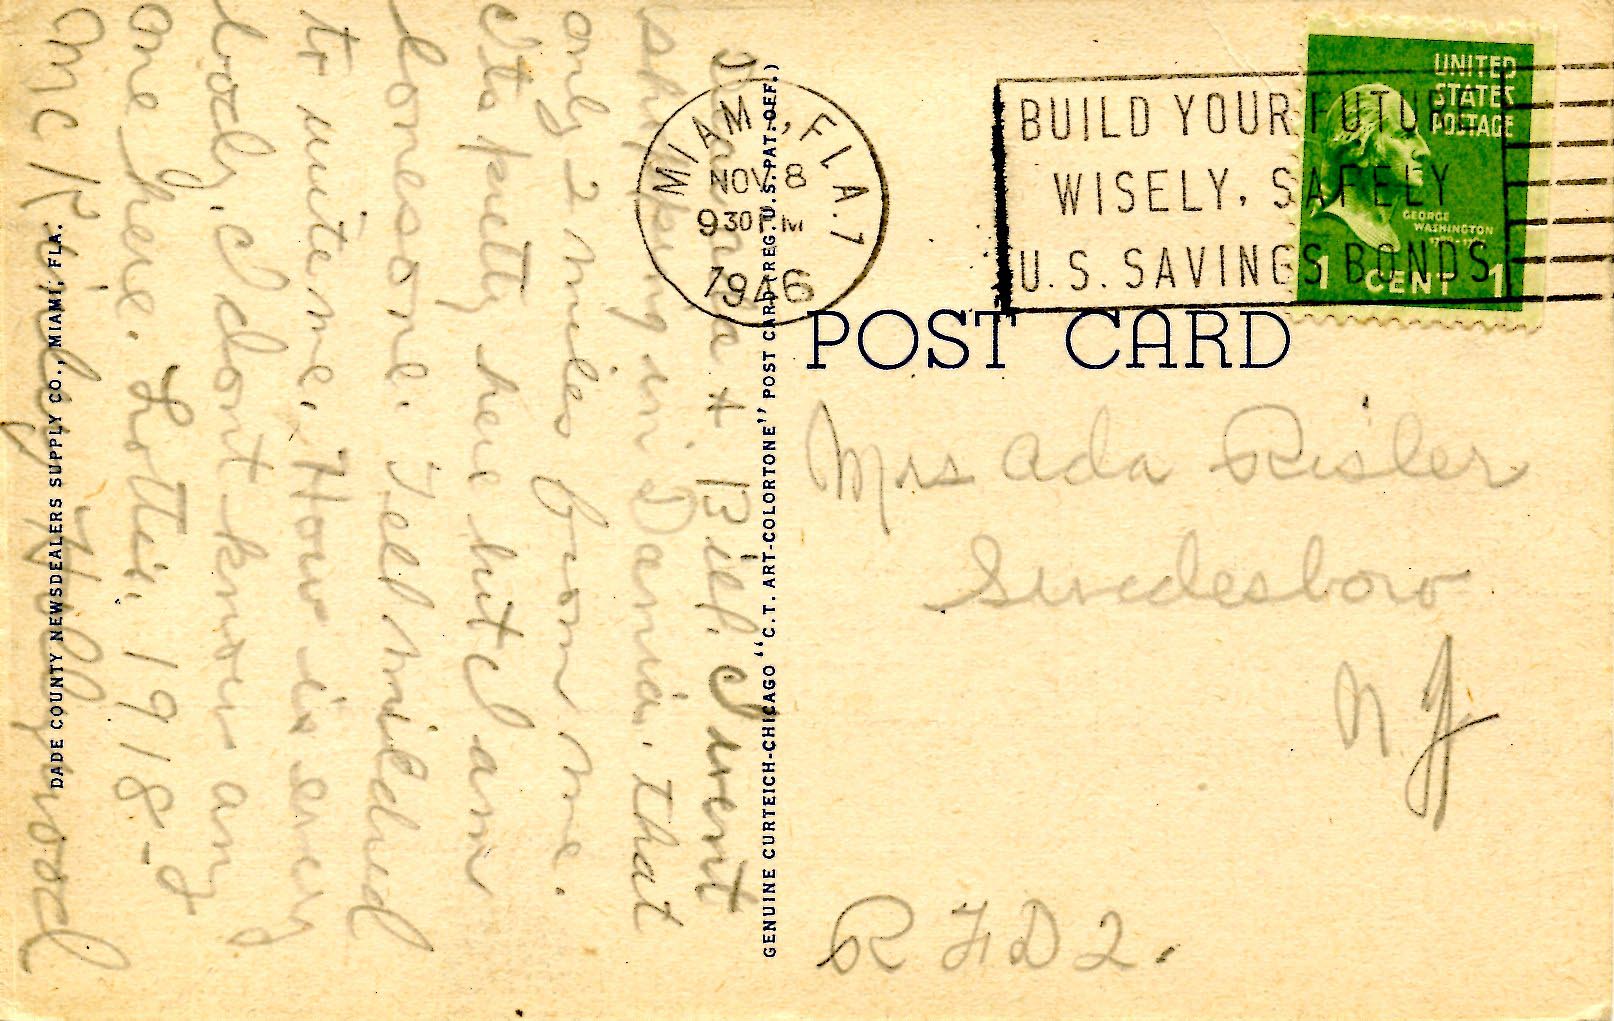 MIAMI, FLA. 7
NOV 8
9 30 PM
1946
BUILD YOUR FUTURE
WISELY, SAFELY
U.S. SAVINGS BONDS
UNITED
STATES
POSTAGE
GEORGE
WASHINGTON
1 CENT 1
POST CARD
Mrs Ada Risler
Swedesboro
N.J
R F D 2.
GENUINE CURTEICH-CHICAGO "C.T. ART-COLORTONE" POST CARD (REG. U.S. PAT. OFF.)
Dear Ada & Bill. I went
shopping in Dania. that
only 2 miles from me.
Its pretty here but I am
lonesome. Tell Mildred
to write me. How is every
body, I dont know any
one here. Lottie, 1918-
Mc Kinley Hollywood
DADE COUNTY NEWSDEALERS SUPPLY CO., MIAMI, FLA.